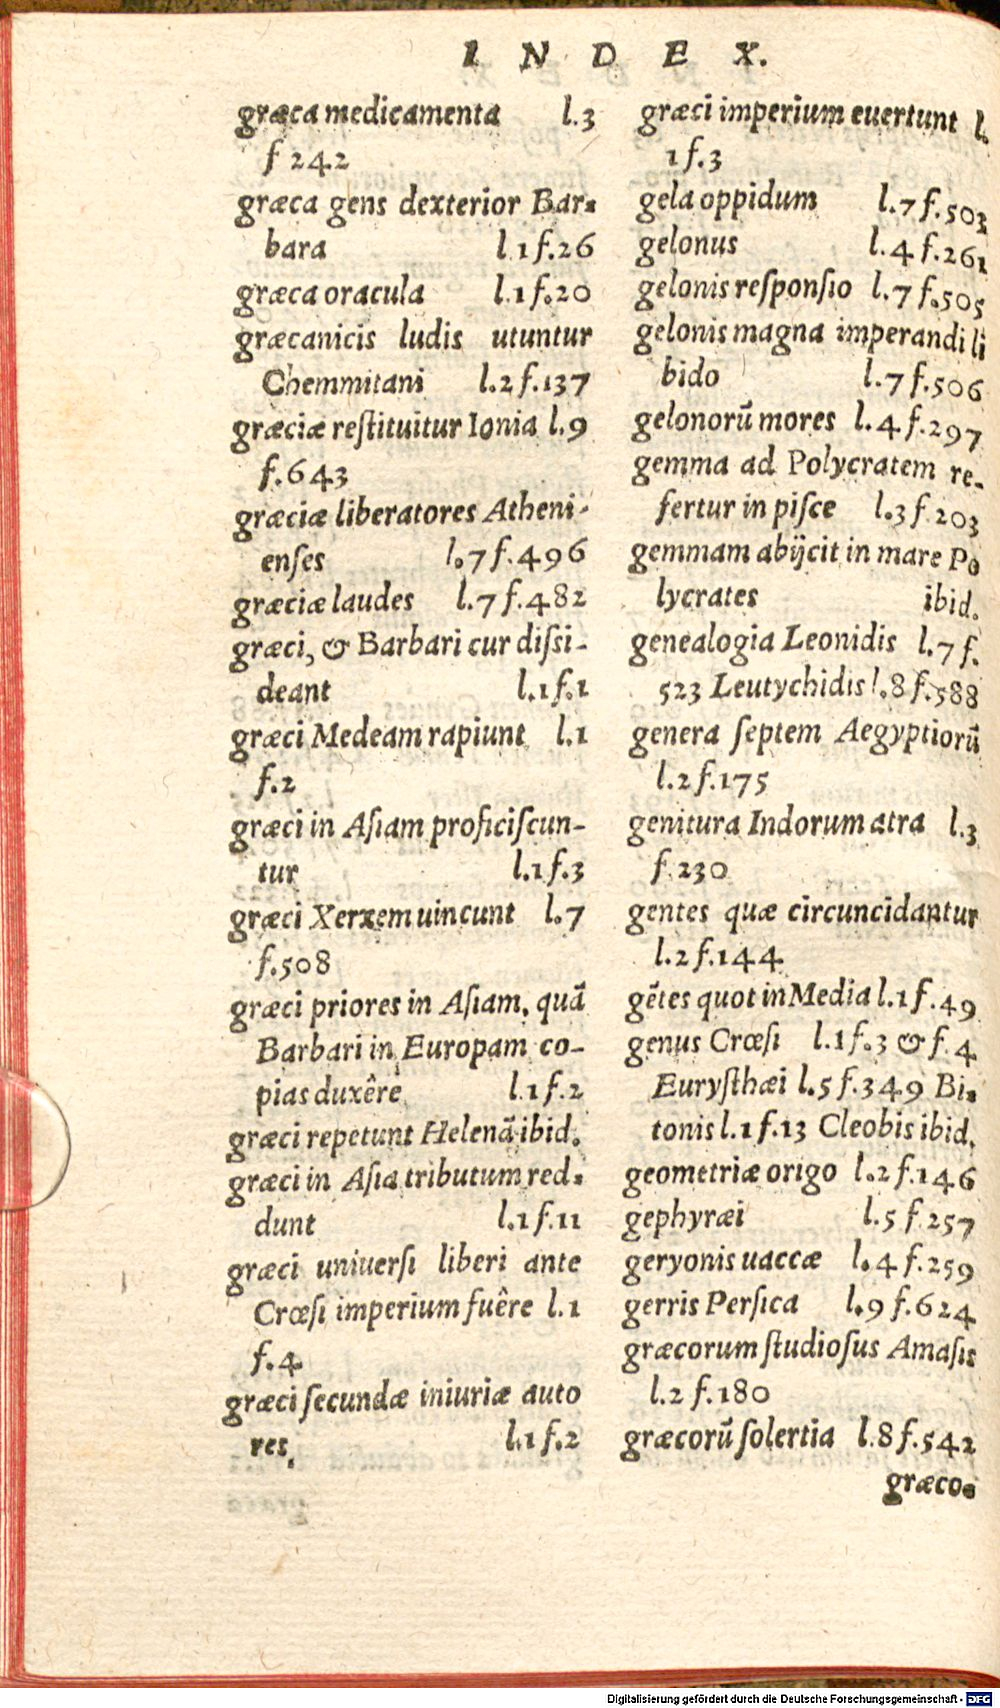 INDEX.
græca medicamenta l.3
f 242
græca gens dexterior Bar-
bara l.1 f.26
græca oracula l.1 f.20
græcanicis ludis utuntur
Chemmitani l.2 f.137
græciæ reſtituitur Ionia l.9
f.643
græciæ liberatores Atheni-
enſes l.7 f.496
græciæ laudes l.7 f.482
græci, & Barbari cur diſsi-
deant l.1 f.1
græci Medeam rapiunt l.1
f.2
græci in Aſiam proficiſcun-
tur l.1 f.3
græci Xerxem uincunt l.7
f.508
græci priores in Aſiam, quã
Barbari in Europam co-
pias duxêre l.1 f.2
græci repetunt Helenã ibid.
græci in Aſia tributum red-
dunt l.1 f.11
græci uniuerſi liberi ante
Crœſi imperium fuêre l.1
f.4
græci ſecundæ iniuriæ auto
res, l.1 f.2
græci imperium euertunt l.
1 f.3
gela oppidum l.7 f.503
gelonus l.4 f.261
gelonis reſponſio l.7 f.505
gelonis magna imperandi li
bido l.7 f.506
gelonorũ mores l.4 f.297
gemma ad Polycratem re-
fertur in piſce l.3 f 203
gemmam abijcit in mare Po
lycrates ibid.
genealogia Leonidis l.7 f.
523 Leutychidis l.8 f.588
genera ſeptem Aegyptiorũ
l.2 f.175
genitura Indorum atra l.3
f 230
gentes quæ circuncidantur
l.2 f.144
gẽtes quot in Media l.1 f.49
genus Crœſi l.1 f.3 & f.4
Euryſthæi l.5 f.349 Bi-
tonis l.1 f.13 Cleobis ibid.
geometriæ origo l.2 f.146
gephyræi l.5 f 257
geryonis uaccæ l.4 f.259
gerris Perſica l.9 f.624
græcorum ſtudioſus Amaſis
l.2 f.180
græcorũ ſolertia l.8 f.542
græco-
Digitalisierung gefördert durch die Deutsche Forschungsgemeinschaft - DFG